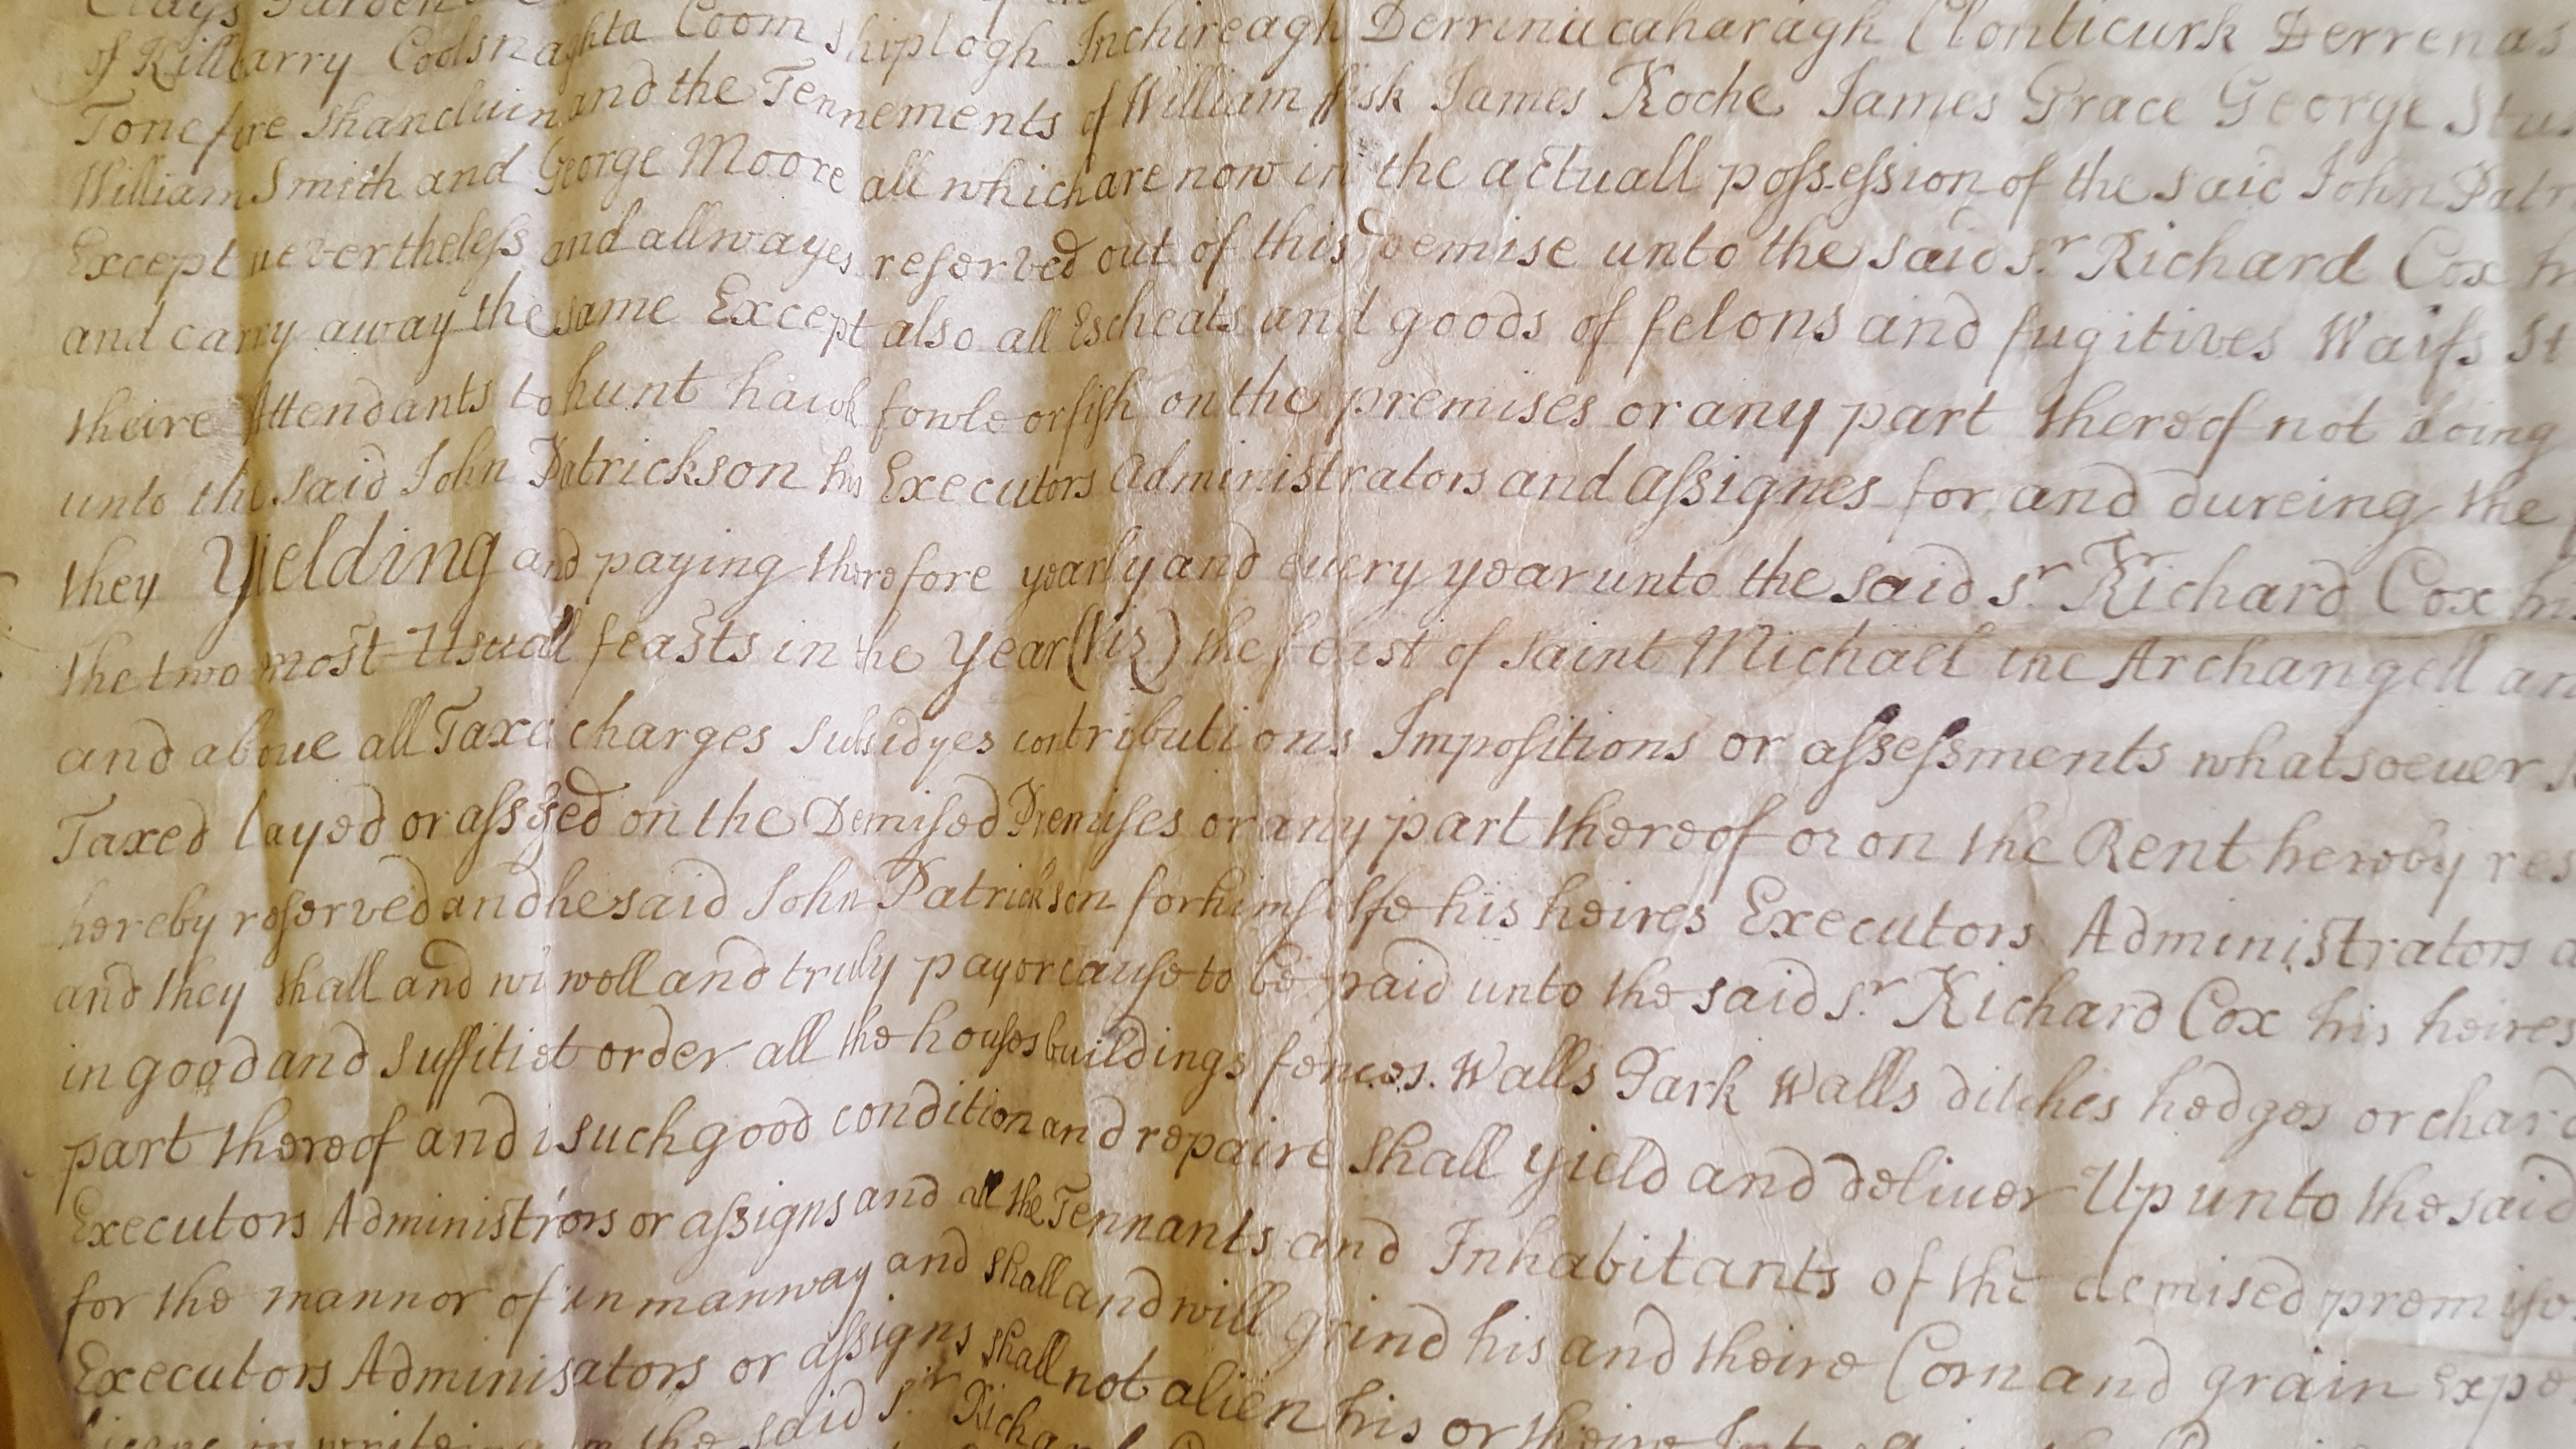 Clays Garden
of Killbarry Coolsnaghta Coom Shiplogh Inchireagh Derrinacaharagh Clonticurk Derrenas
Tonefire Shancluin and the Tennements of William Fisk James Roche James Grace George Stu
William Smith and George Moore all which are now in the actuall possession of the said John Patr
Except nevertheless and allwayes reserved out of this Demise unto the said Sr. Richard Cox h
and carry away the same Except also all Escheats and goods of felons and fugitives Waifs St
theire Attendants to hunt hawk fowle or fish on the premises or any part thereof not doing
unto the said John Patrickson his Executors Administrators and assignes for and dureing the
they Yielding and paying therefore yearly and every year unto the said Sr. Richard Cox hi
the two most Usuall feasts in the Year (Viz) the feast of Saint Michael the Archangell an
and above all Taxe charges Subsidyes contributions Impositions or assessments whatsoeuer
Taxed layed or assessed on the Demised Premises or any part thereof or on the Rent hereby res
hereby reserved and he said John Patrickson for himselfe his heires Executors Administrators a
and they shall and wi well and truly pay or cause to be paid unto the said Sr. Richard Cox his heires
in good and suffitiet order all the houses buildings fences. Walls Park Walls ditches hedges orchard
part thereof and i such good condition and repaire shall yield and deliuer Up unto the said
Executors Administrors or assigns and all the Tennants and Inhabitants of the demised premise
for the mannor of inmanway and shall and will grind his and theire Corn and grain Expe
Executors Adminisators or assigns shall not alien his or theire
in writeing the said Sr. Richard